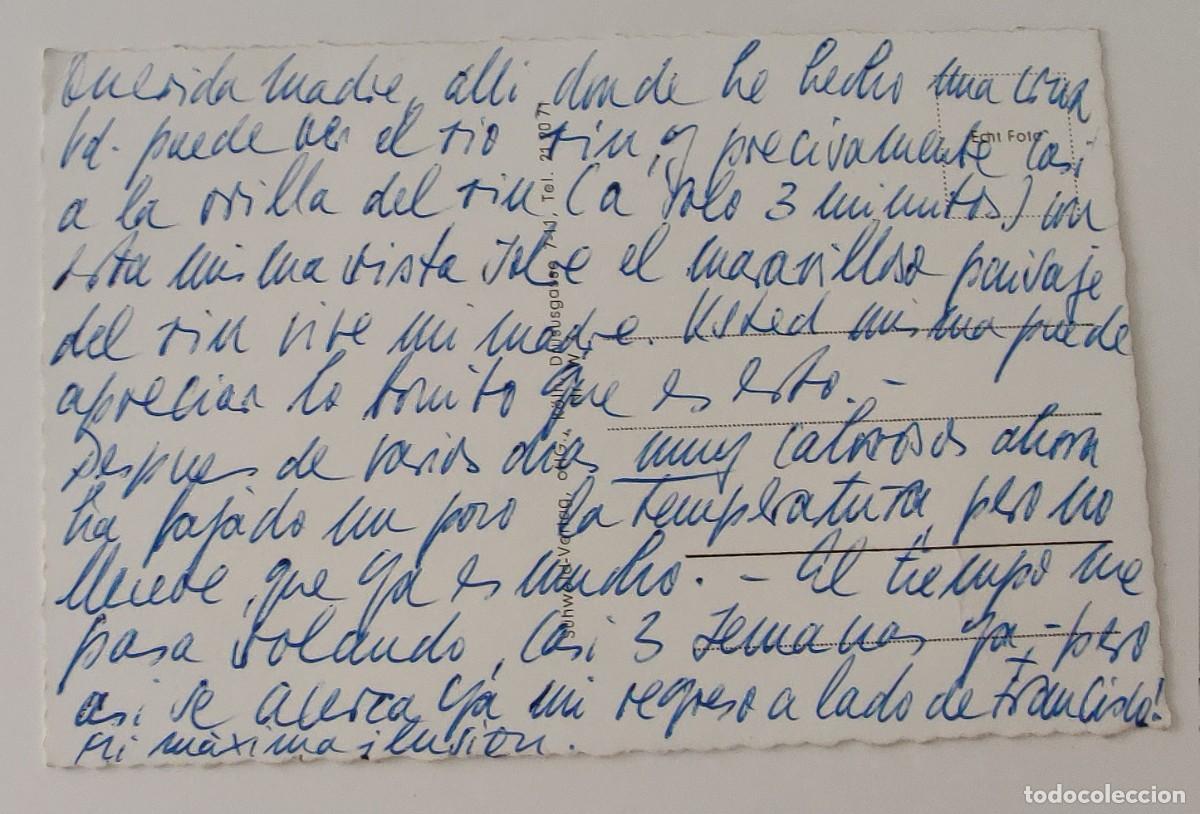 Querida madre, alli donde he hecho una cruz
Vd. puede ver el rio rin, y precisamente casi
a la orilla del rin (a solo 3 minutos) con
esta misma vista sobre el maravilloso paisaje
del rin vive mi madre. Usted misma puede
apreciar lo bonito que es esto. -
Despues de varios dias muy calorosos ahora
ha bajado un poco la temperatura, pero no
llueve, que ya es mucho. - El tiempo me
pasa volando, casi 3 semanas ya, - pero
asi se acerca ya mi regreso a lado de Francisco!
Mi màxima ilusion.
Echt Foto
Schwald-Verlag, oHG., Köln, Drususgasse 7-11, Tel. 21 20 71
todocoleccion